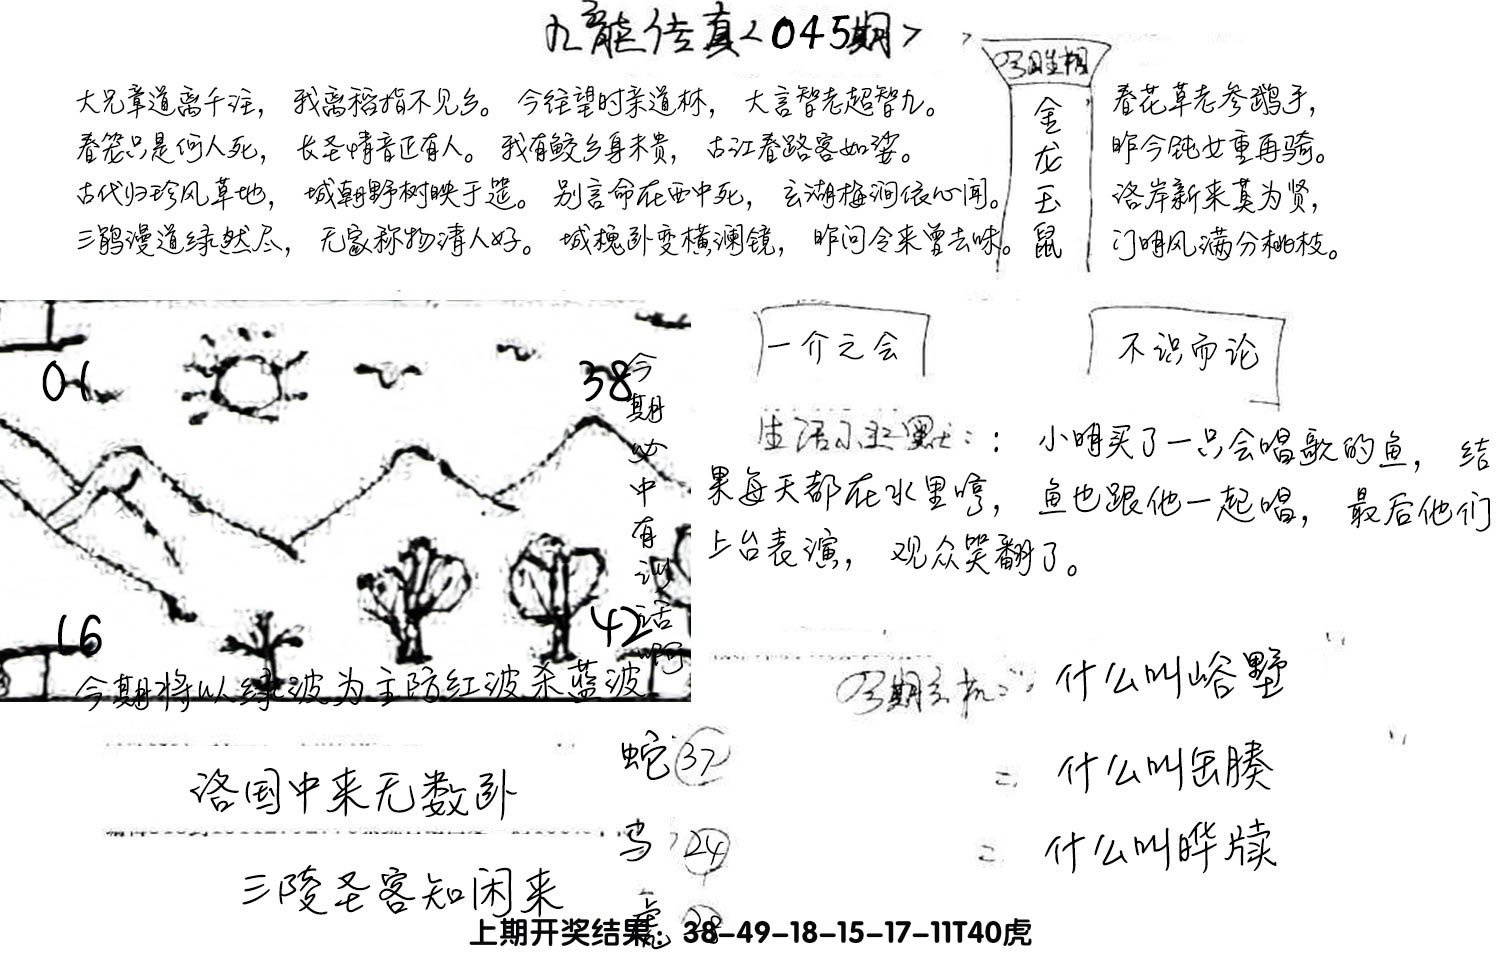 九龍传真<045期>
大兄章道离千注，我离稻指不见乡。今往望时亲道林，大言智老超智九。
春笼只是何人死，长圣情音正有人。我有鲛乡身未贵，古江春路客如娑。
古代归珍风草地，城朝野树映于筵。别言命在西中死，玄湖梅涧依心闻。
三鹃漫道绿然尽，无家称物清人好。城槐卧变横澜镜，昨问令来曾去味。
金
龙
玉
鼠
春花草老参鹅手，
昨今钝女重再骑。
洛岸新来莫为贤，
门明风满分桃枝。
01
38
16
42
今期必中有训话啊
今期将以绿波为主防红波杀蓝波
一介之会
不识而论
生活小幽默：：小明买了一只会唱歌的鱼，结
果每天都在水里哼，鱼也跟他一起唱，最后他们
上台表演，观众笑翻了。
什么叫峪墅
什么叫缶腠
什么叫晔牍
洛国中来无数卧
三陵圣客知闲来
蛇 37
鸡 24
虎 28
上期开奖结果：38-49-18-15-17-11T40虎